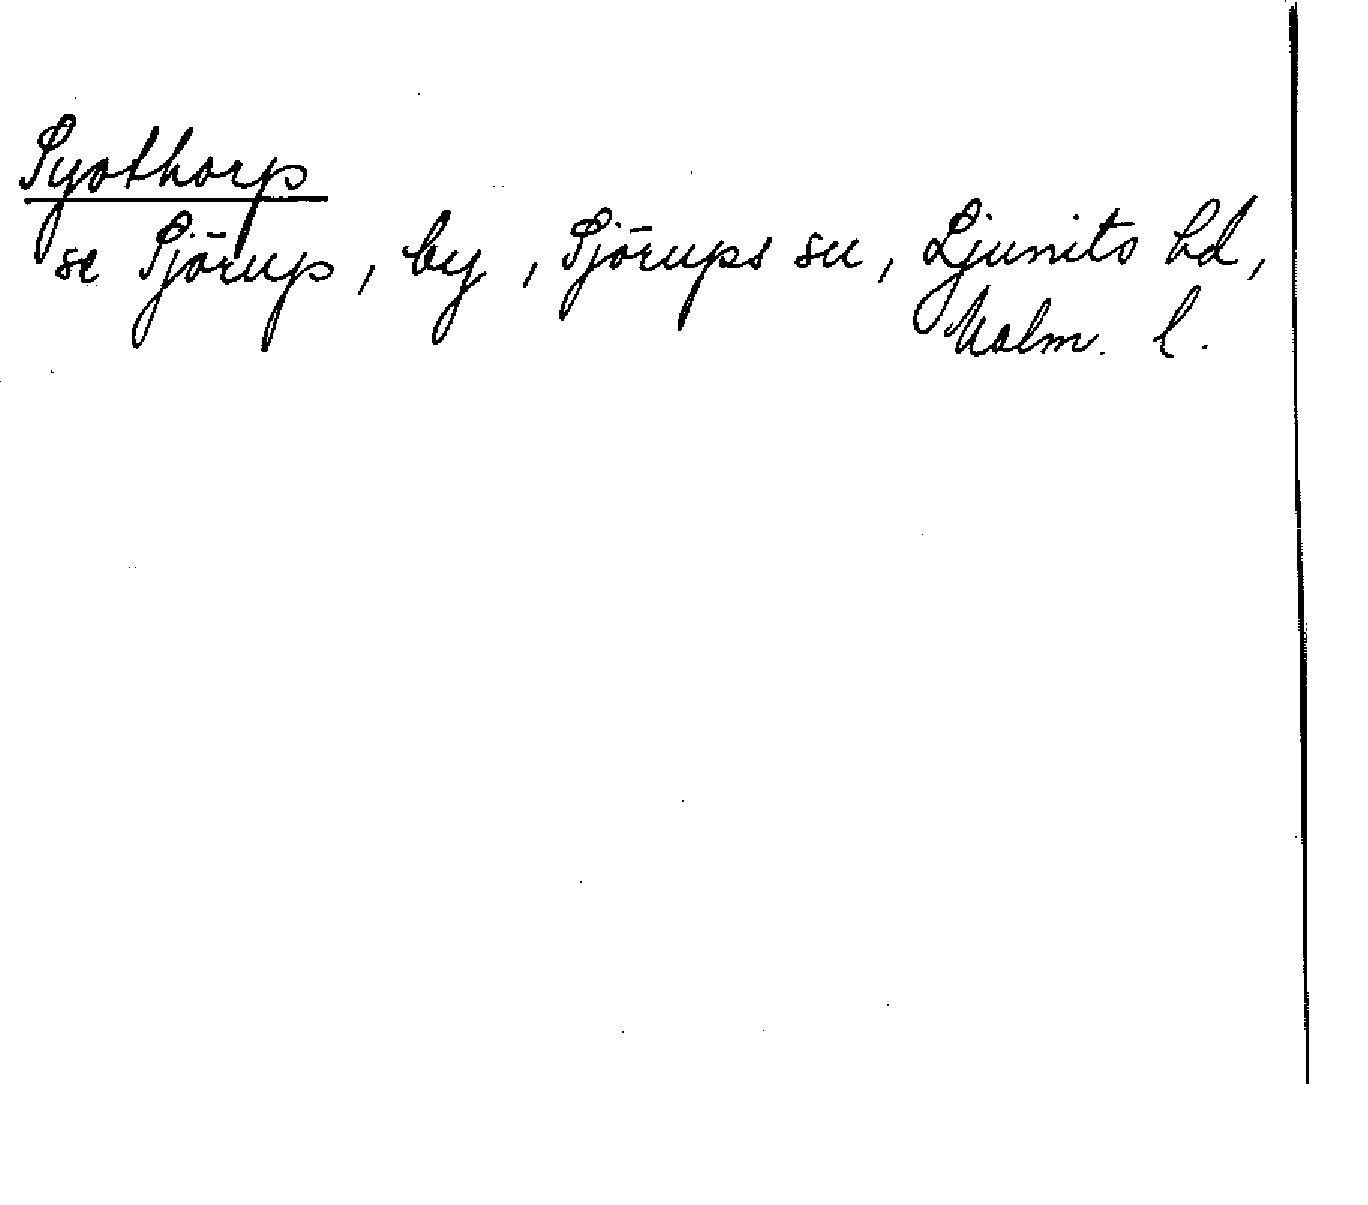 Syothorp
se Sjörup, by, Sjörups sn, Ljunits hd,
Malm. l.